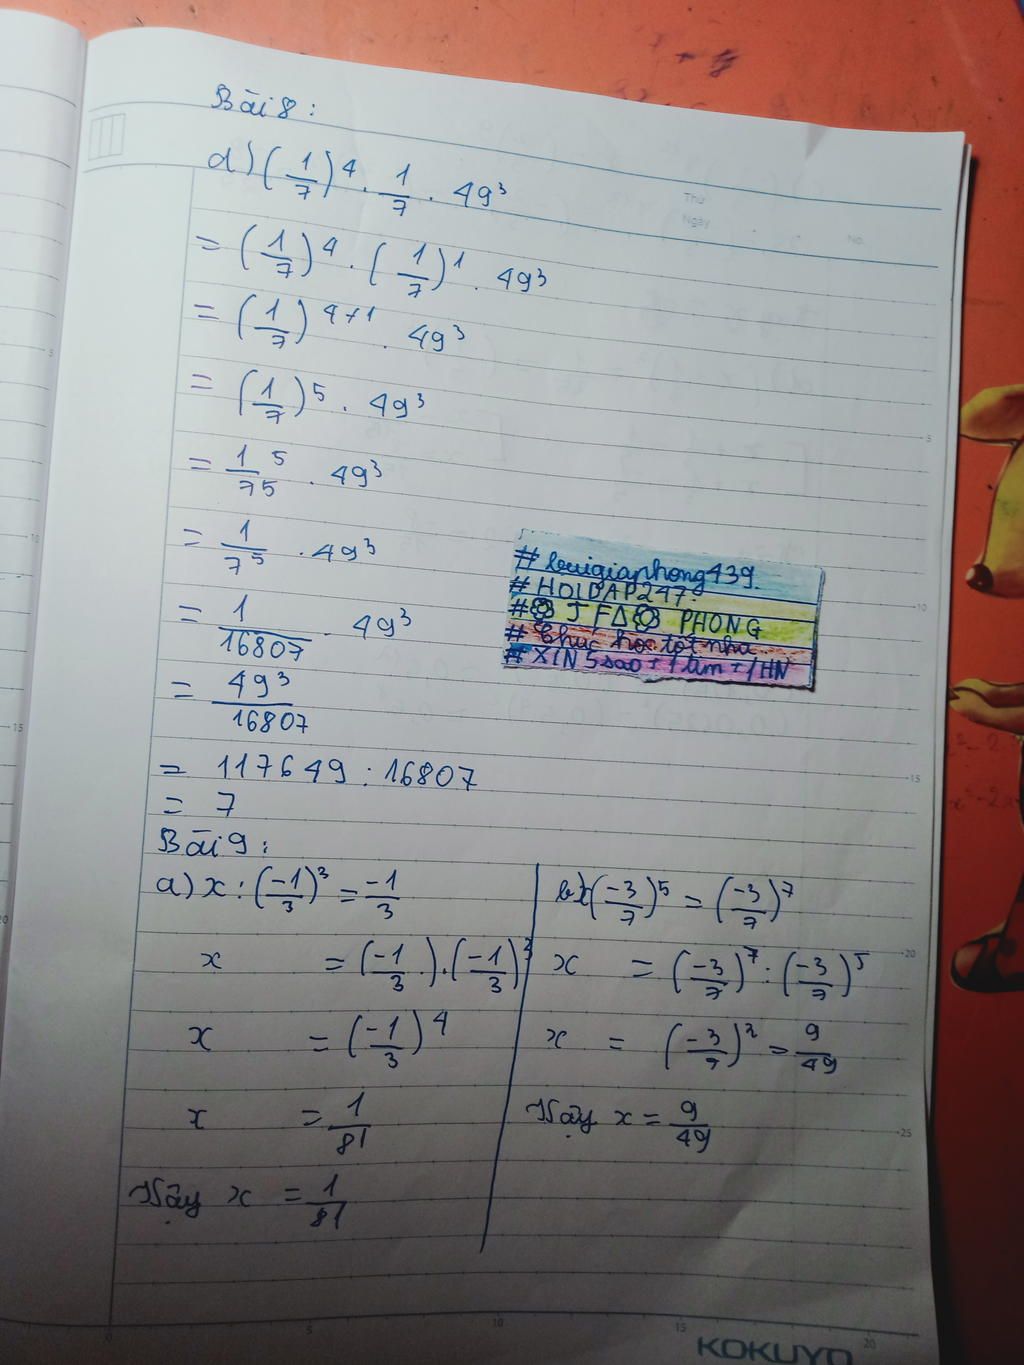 Bài 8:
d) (1/7)⁴ . 1/7 . 49³
= (1/7)⁴ . (1/7)¹ . 49³
= (1/7)⁴⁺¹ . 49³
= (1/7)⁵ . 49³
= 1⁵/7⁵ . 49³
= 1/7⁵ . 49³
= 1/16807 . 49³
= 49³/16807
= 117649 : 16807
= 7
#buigiaphong439.
#HOIDAP247.
# JFA PHONG
# Chúc học tốt nha
# XIN 5 sao + 1 tim + 1HN
Bài 9:
a) x : (-1/3)³ = -1/3
x = (-1/3) . (-1/3)³
x = (-1/3)⁴
x = 1/81
Vậy x = 1/81
b) x (-3/7)⁵ = (-3/7)⁷
x = (-3/7)⁷ : (-3/7)⁵
x = (-3/7)² = 9/49
Vậy x = 9/49
Thứ
Ngày
No.
5
10
15
20
25
0 5 10 15 20
KOKUYO